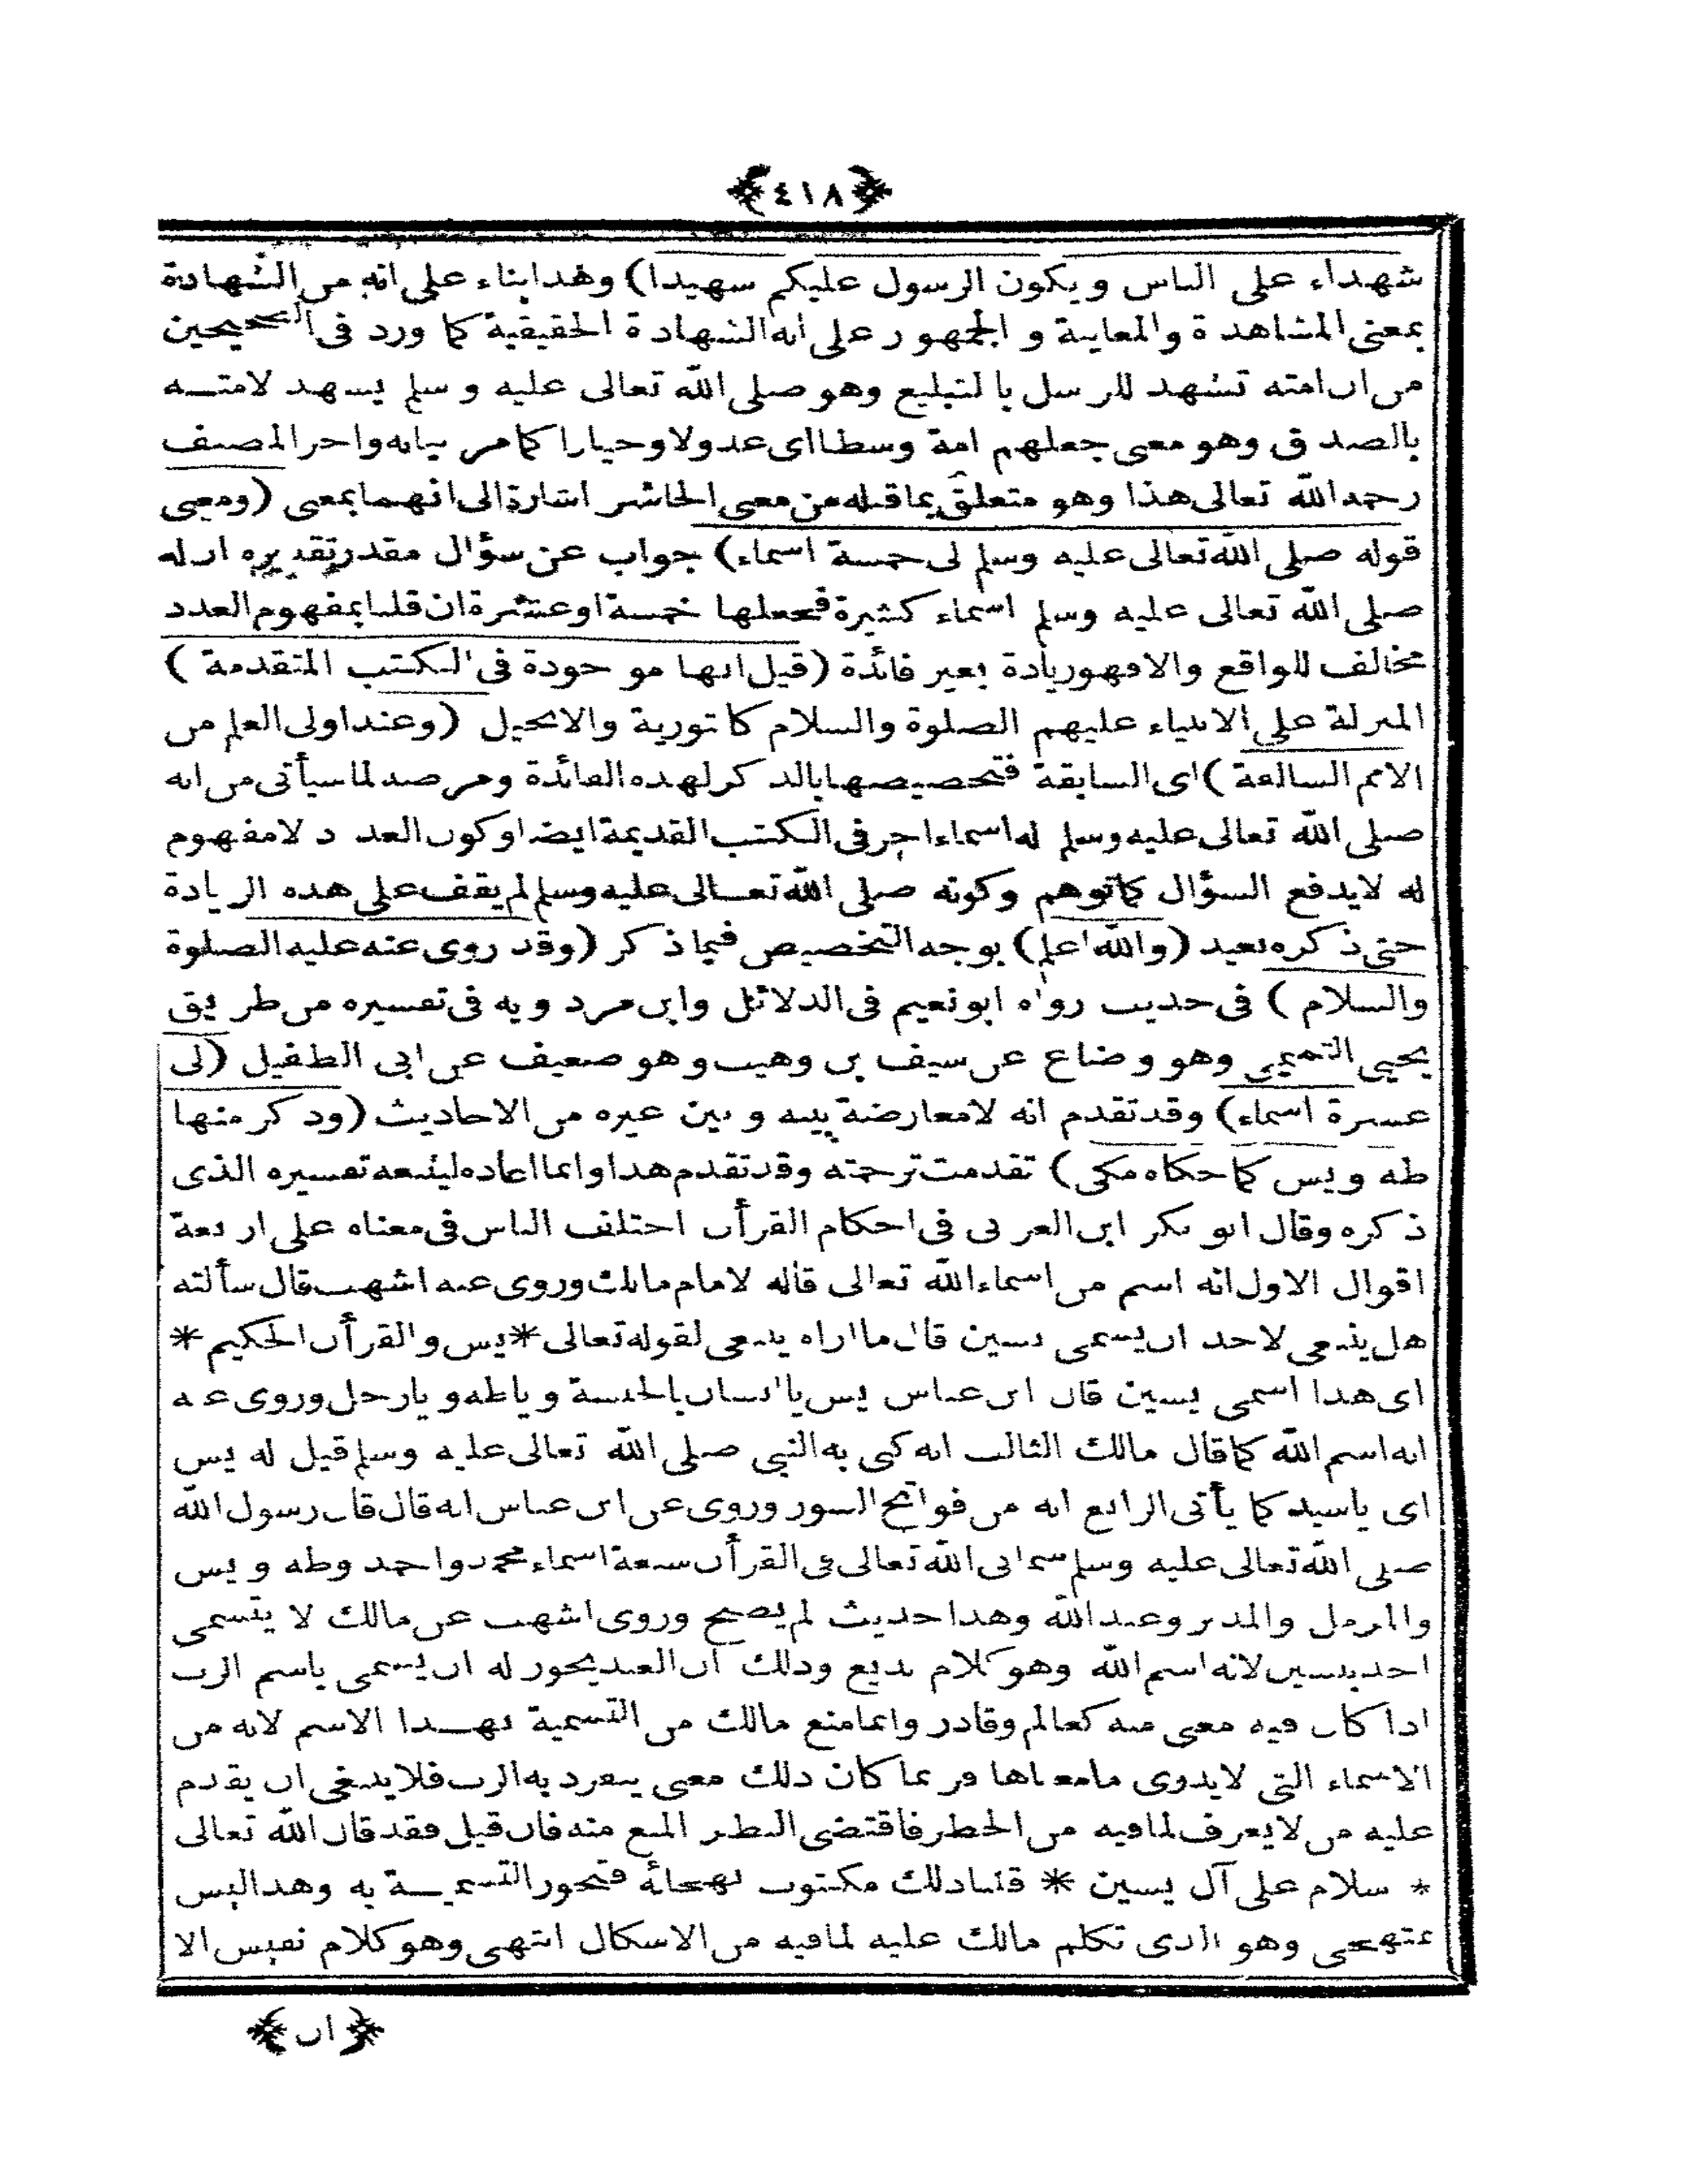 ﴿٤١٨﴾
شهداء على الناس ويكون الرسول عليكم شهيدا) وهذا بناء على انه من الشهادة
بمعنى المشاهدة والمعاينة والجمهور على انه الشهادة الحقيقية كما ورد فى الصحيحين
من ان امته تشهد للرسل بالتبليغ وهو صلى الله تعالى عليه وسلم يشهد لامته
بالصدق وهو معنى جعلهم امة وسطا اى عدولا وخيارا كما مر بيانه واخر المصنف
رحمه الله تعالى هذا وهو متعلق بما قبله من معنى الحاشر اشارة الى انهما بمعنى (ومعنى
قوله صلى الله تعالى عليه وسلم لى خمسة اسماء) جواب عن سؤال مقدر تقديره ان له
صلى الله تعالى عليه وسلم اسماء كثيرة فجعلها خمسة او عشرة ان قلنا بمفهوم العدد
مخالف للواقع والا فهو زيادة بغير فائدة (قيل انها موجودة فى الكتب المتقدمة)
المنزلة على الانبياء عليهم الصلوة والسلام كاتورية والانجيل (وعند اولى العلم من
الامم السالفة) اى السابقة فتخصيصها بالذكر لهذه الفائدة ومرضه لما سيأتى من انه
صلى الله تعالى عليه وسلم له اسماء اخر فى الكتب القديمة ايضا وكون العدد لا مفهوم
له لايدفع السؤال كما توهم وكونه صلى الله تعالى عليه وسلم لم يقف على هذه الزيادة
حتى ذكره بعيد (والله اعلم) بوجه التخصيص فيما ذكر (وقد روى عنه عليه الصلوة
والسلام) فى حديث رواه ابونعيم فى الدلائل وابن مردويه فى تفسيره من طريق
يحيى التميمى وهو وضاع عن سيف بن وهب وهو ضعيف عن ابى الطفيل (لى
عشرة اسماء) وقد تقدم انه لا معارضة بينه وبين غيره من الاحاديث (وذكر منها
طه ويس كما حكاه مكى) تقدمت ترجمته وقد تقدم هذا وانما اعاده ليتبعه تفسيره الذى
ذكره وقال ابو بكر ابن العربى فى احكام القرأن اختلف الناس فى معناه على اربعة
اقوال الاول انه اسم من اسماء الله تعالى قاله لامام مالك وروى عنه اشهب قال سألته
هل ينبغى لاحد ان يسمى بيسين قال ما اراه ينبغى لقوله تعالى * يس والقرأن الحكيم *
اى هذا اسمى يسين قال ابن عباس يس يا انسان بالحبشة وياطه ويارجل وروى عنه
انه اسم الله كما قال مالك الثالث انه كنى به النبى صلى الله تعالى عليه وسلم قيل له يس
اى ياسيد كما يأتى الرابع انه من فواتح السور وروى عن ابن عباس انه قال قال رسول الله
صلى الله تعالى عليه وسلم سمانى الله تعالى فى القرأن سبعة اسماء محمد واحمد وطه ويس
والمزمل والمدثر وعبدالله وهذا حديث لم يصح وروى اشهب عن مالك لا يتسمى
احد بيسين لانه اسم الله وهو كلام بديع وذلك ان العبد يجوز له ان يسمى باسم الرب
اذا كان فيه معنى منه كعالم وقادر وانما منع مالك من التسمية بهذا الاسم لانه من
الاسماء التى لايدرى ما معناها فربما كان ذلك معنى ينفرد به الرب فلا ينبغى ان يقدم
عليه من لا يعرف لما فيه من الخطر فاقتضى النظر المنع منه فان قيل فقد قال الله تعالى
* سلام على آل يسين * قلنا ذلك مكتوب بهجائه فتجوز التسمية به وهذا ليس
بمتهجى وهو الذى تكلم مالك عليه لما فيه من الاشكال انتهى وهو كلام نفيس الا
﴿ان﴾